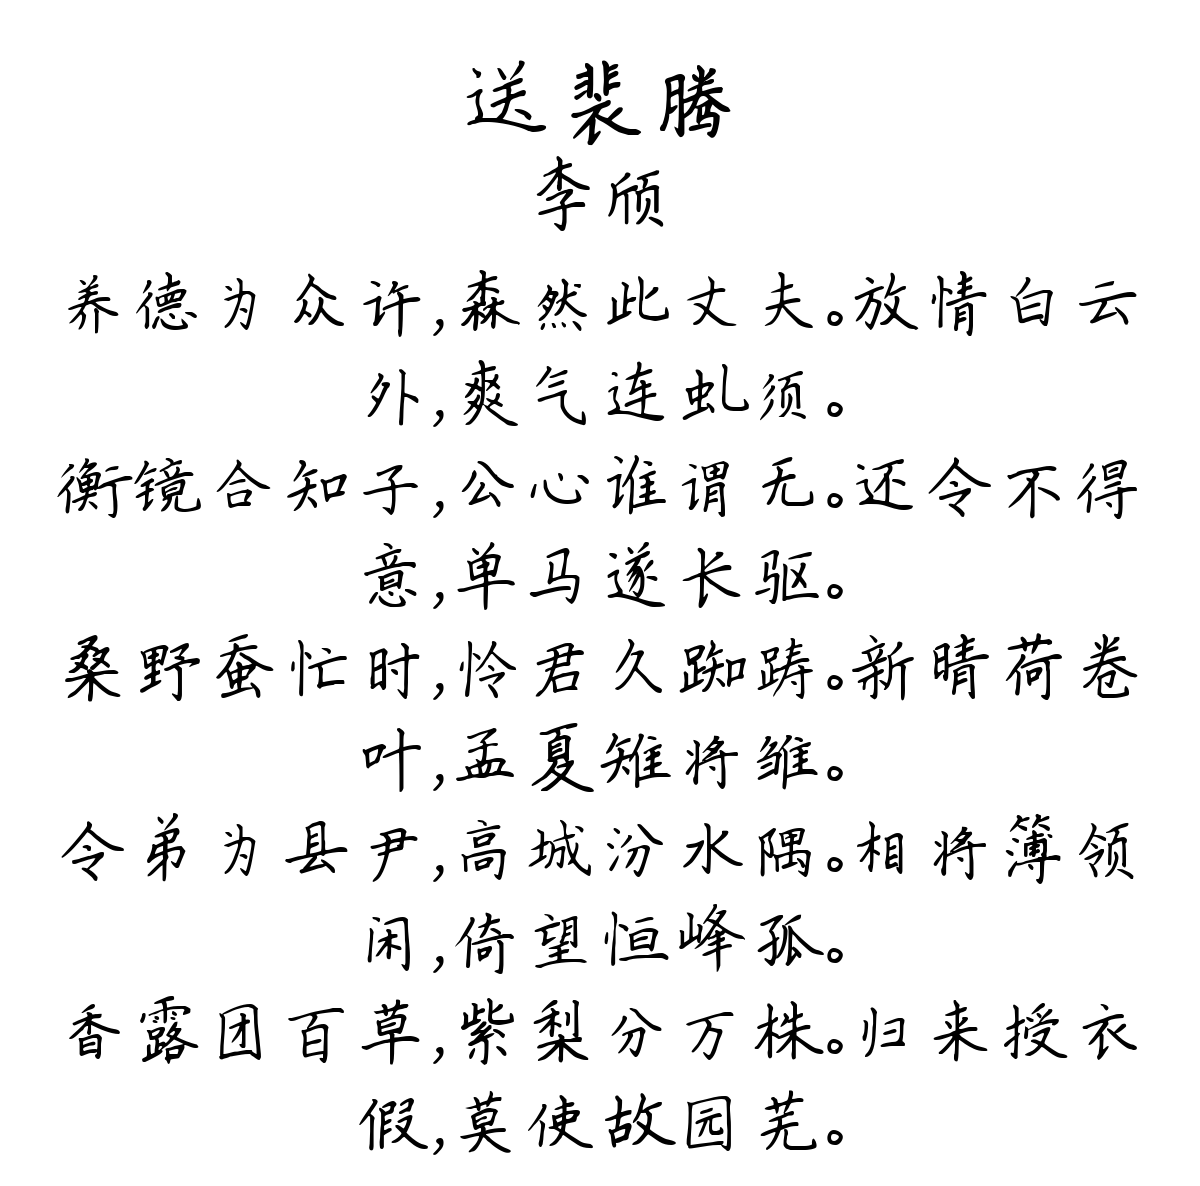 送裴腾
李颀
养德为众许,森然此丈夫。放情白云
外,爽气连虬须。
衡镜合知子,公心谁谓无。还令不得
意,单马遂长驱。
桑野蚕忙时,怜君久踟踌。新晴荷卷
叶,孟夏雉将雏。
令弟为县尹,高城汾水隅。相将簿领
闲,倚望恒峰孤。
香露团百草,紫梨分万株。归来授衣
假,莫使故园芜。